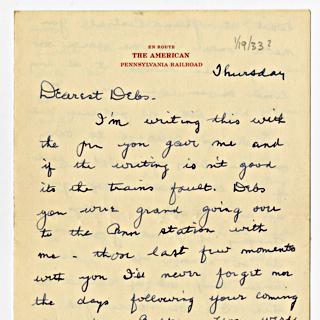 EN ROUTE
THE AMERICAN
PENNSYLVANIA RAILROAD
1/19/33?
Thursday
Dearest Debs-
I'm writing this with
the pen you gave me and
if the writing is n't good
its the trains fault. Debs
you were grand going over
to the Penn station with
me - those last few moments
with you I'll never forget nor
the days following your coming